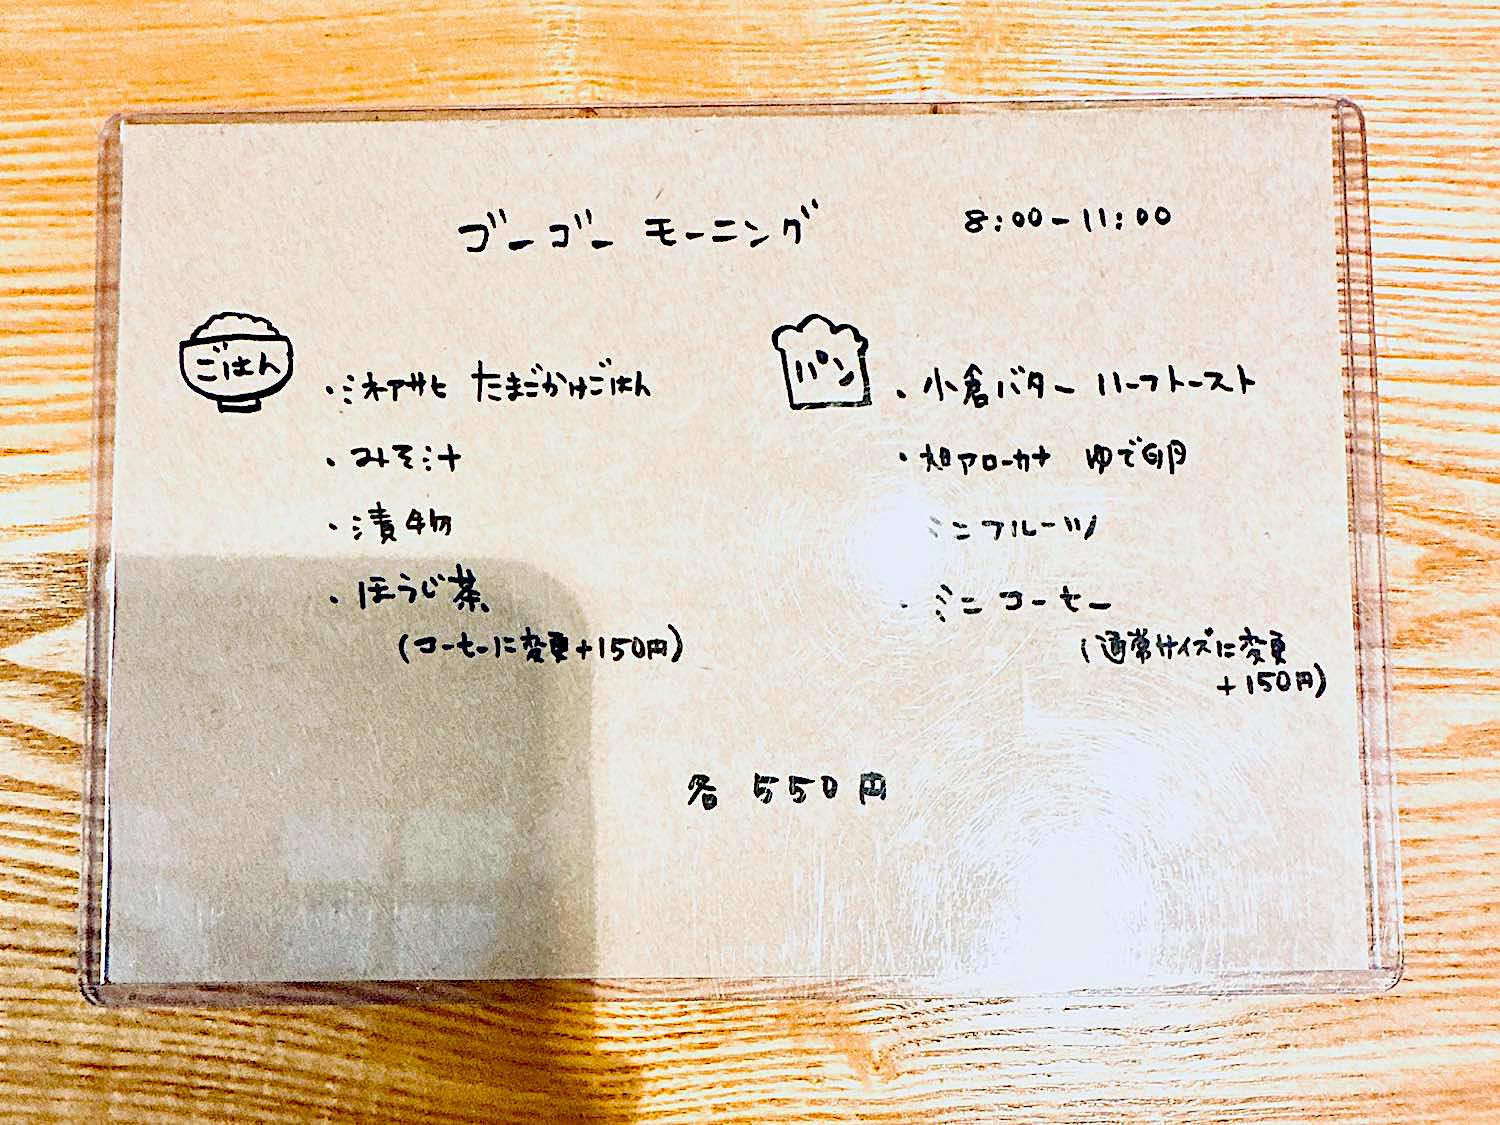 ゴーゴー モーニング 8:00-11:00
ごはん
・ミネアサヒ たまごかけごはん
・みそ汁
・漬物
・ほうじ茶
(コーヒーに変更+150円)
パン
・小倉バター ハーフトースト
・旭アローカナ ゆで卵
ミニフルーツ
・ミニコーヒー
(通常サイズに変更
+150円)
各 550円